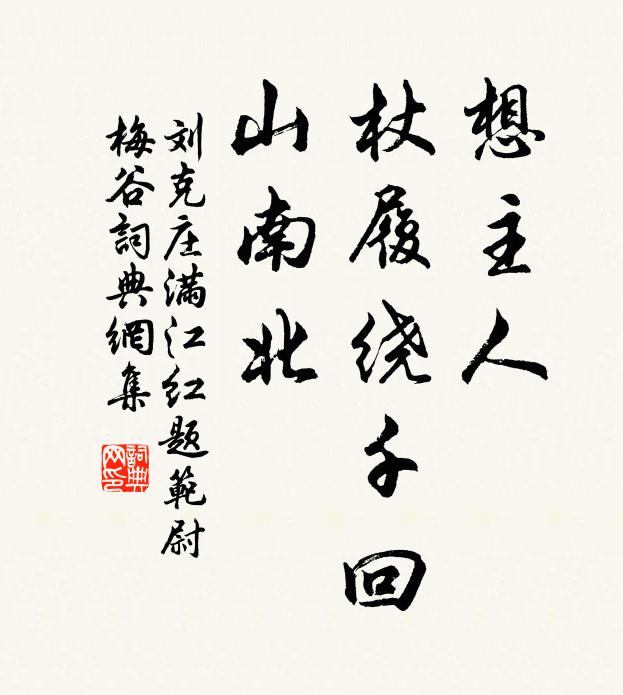 想主人
杖履绕千回
山南北
刘克庄满江红题範尉
梅谷詞典網集
詞典
网印